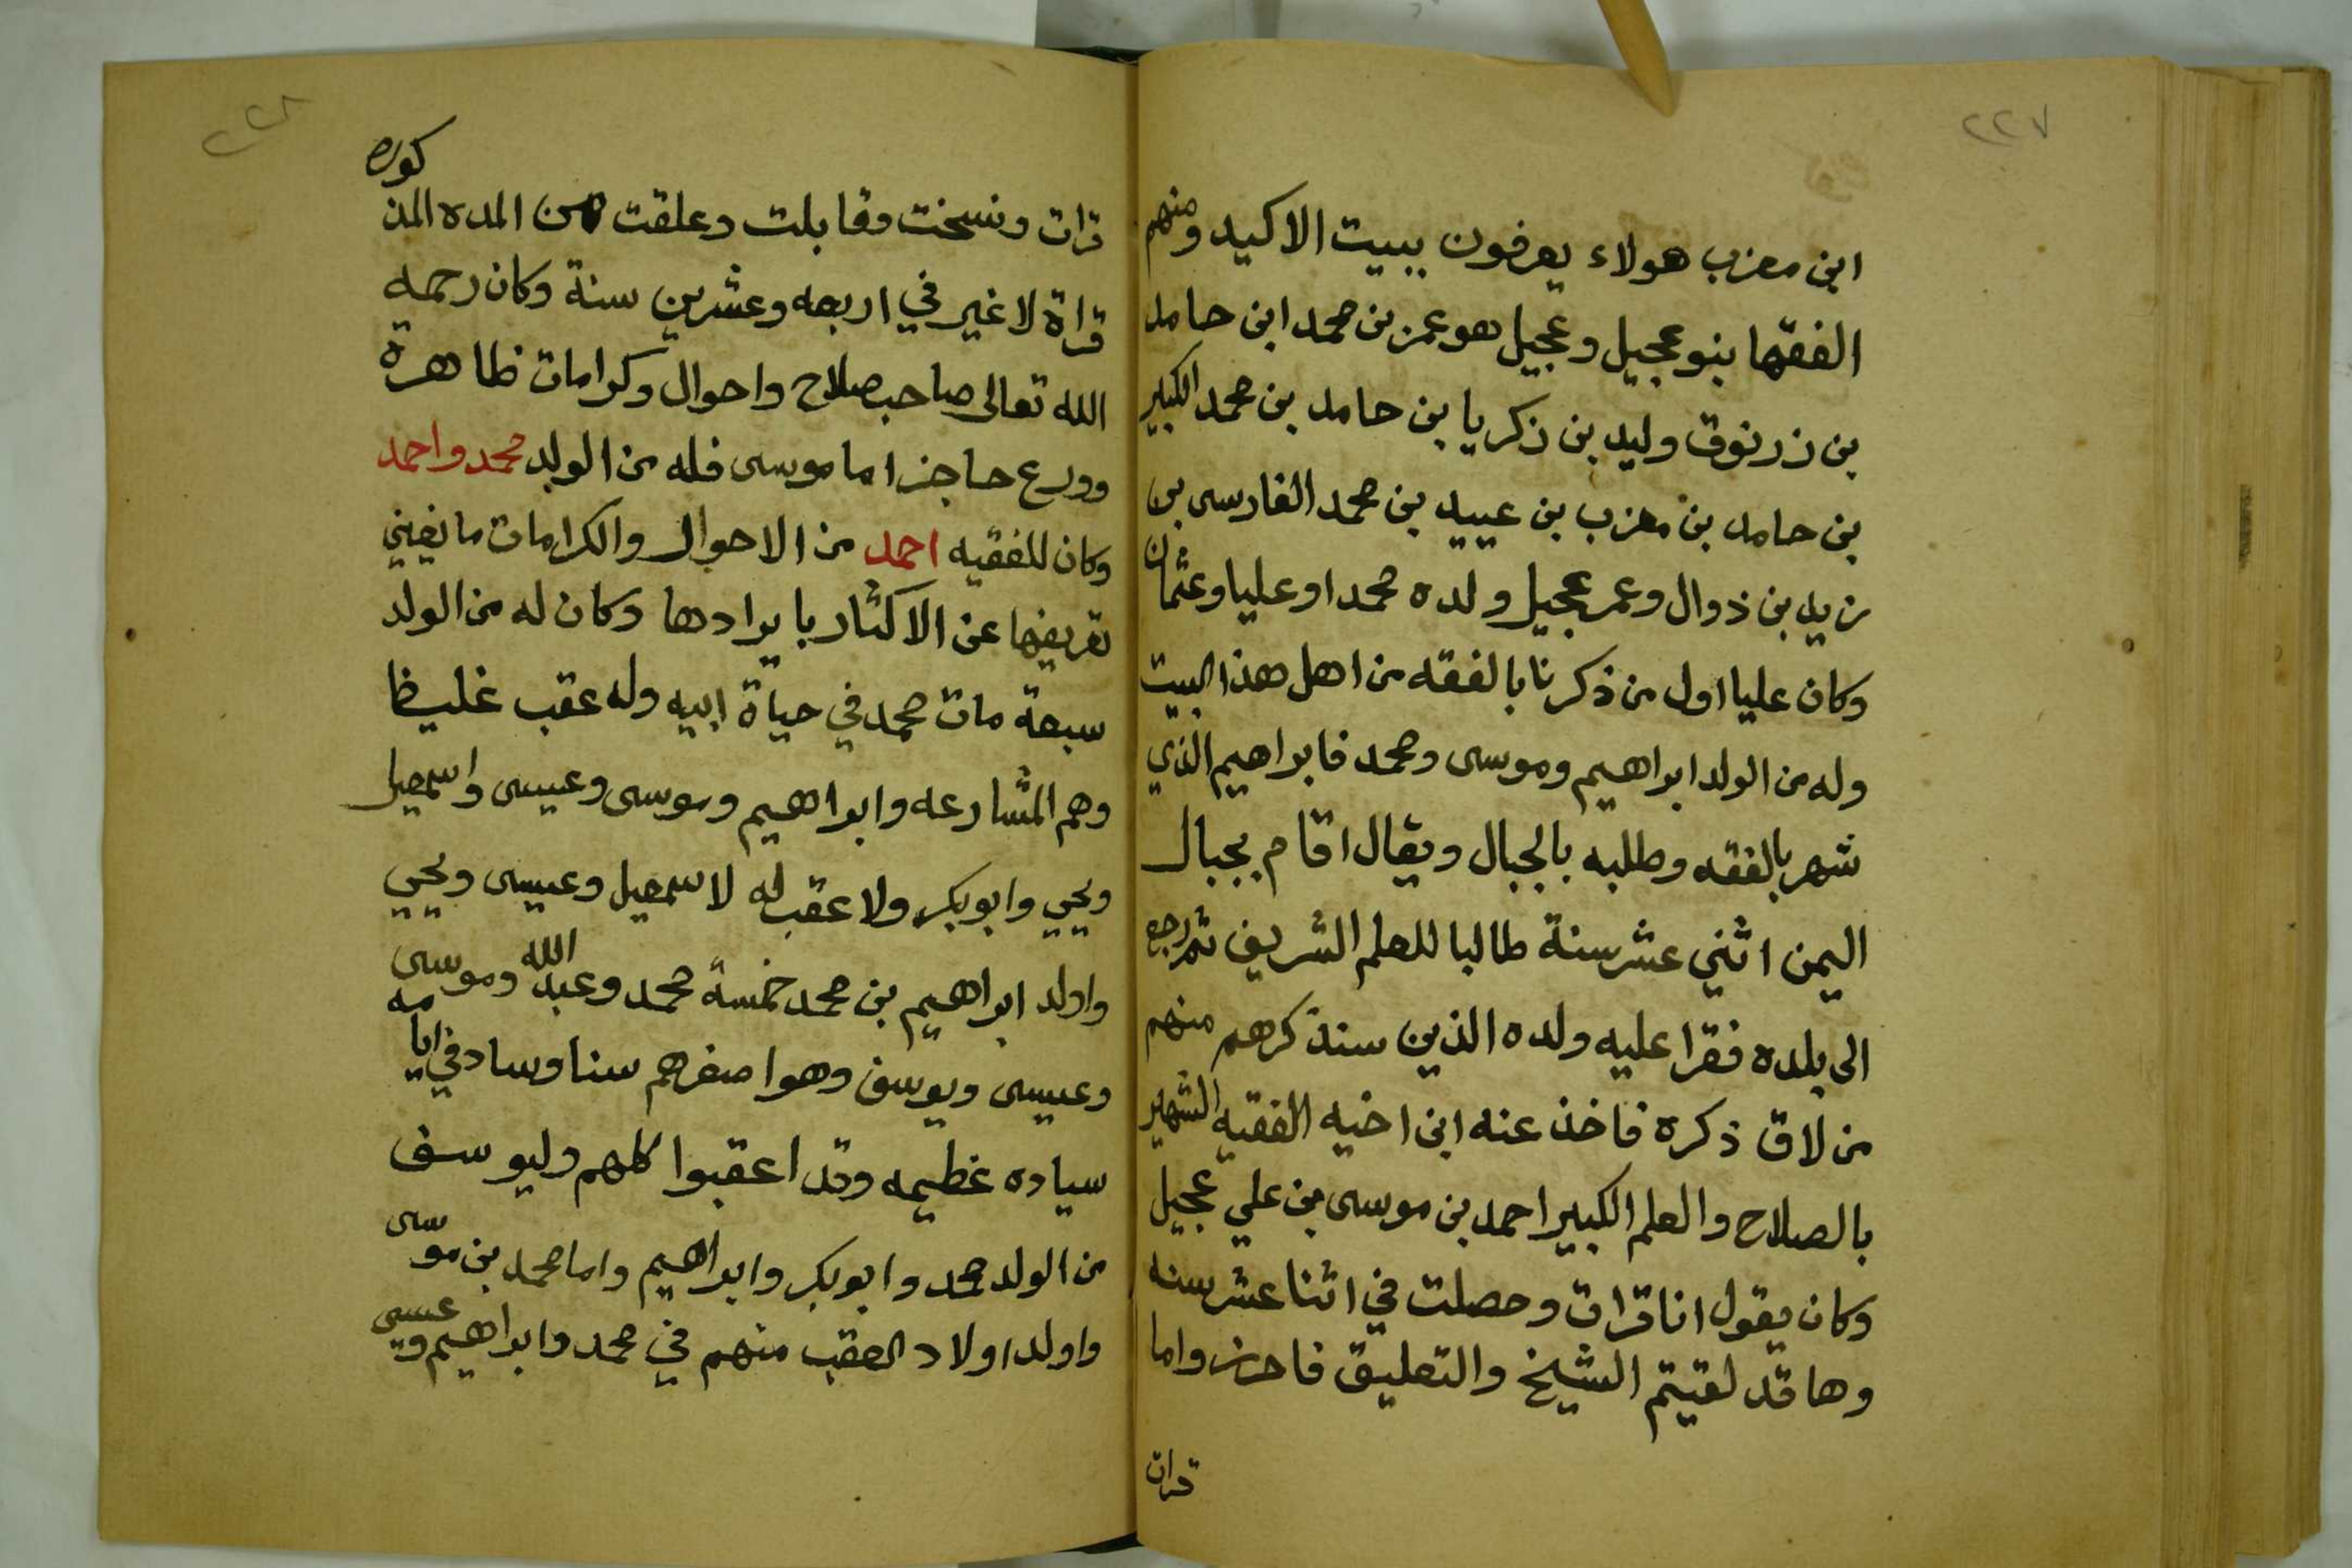 ٢٢٧
ابن معزب هولاء يعرفون ببيت الاكيد ومنهم
الفقها بنو عجيل وعجيل هو عمر بن محمد ابن حامد
بن زرنوق وليد بن زكريا بن حامد بن محمد الكبير
بن حامد بن معزب بن عبيد بن محمد الفارسى بن
زيد بن ذوال وعمر عجيل ولده محمدا وعليا وعثمان
وكان عليا اول من ذكرنا بالفقه من اهل هذا البيت
وله من الولد ابراهيم وموسى ومحمد فابراهيم الذي
شهر بالفقه وطلبه بالجبال ويقال اقام بجبال
اليمن اثني عشر سنة طالبا للعلم الشريف ثم رجع
الى بلده فقرا عليه ولده الذين سنذكرهم منهم
من لاق ذكره فاخذ عنه ابن اخيه الفقيه الشهير
بالصلاح والعلم الكبير احمد بن موسى بن علي عجيل
وكان يقول انا قرات وحصلت في اثنا عشر سنه
وها قد لقيتم الشيخ والتعليق فاحرز واما
قرات
٢٢٨
قرات ونسخت وقابلت وعلقت هن المده المذكوره
قراة لا غير في اربعه وعشرين سنة وكان رحمه
الله تعالى صاحب صلاح واحوال وكرامات ظاهرة
وورع حاجز اما موسى فله من الولد محمد واحمد
وكان للفقيه احمد من الاحوال والكرامات ما يغيني
تعريفها عن الاكثار بايرادها وكان له من الولد
سبعة مات محمد في حياة ابيه وله عقب غليظا
وهم المشارعه وابراهيم وموسى وعيسى واسمعيل
ويحيي وابوبكر ولا عقب له لاسمعيل وعيسى ويحيي
واولد ابراهيم بن محمد خمسة محمد وعبد الله وموسى
وعيسى ويوسف وهو اصغرهم سنا وساد في ايامه
سياده عظيمه وقد اعقبوا كلهم وليوسف
من الولد محمد وابوبكر وابراهيم واما محمد بن موسى
واولد اولاد العقب منهم في محمد وابراهيم وعيسى